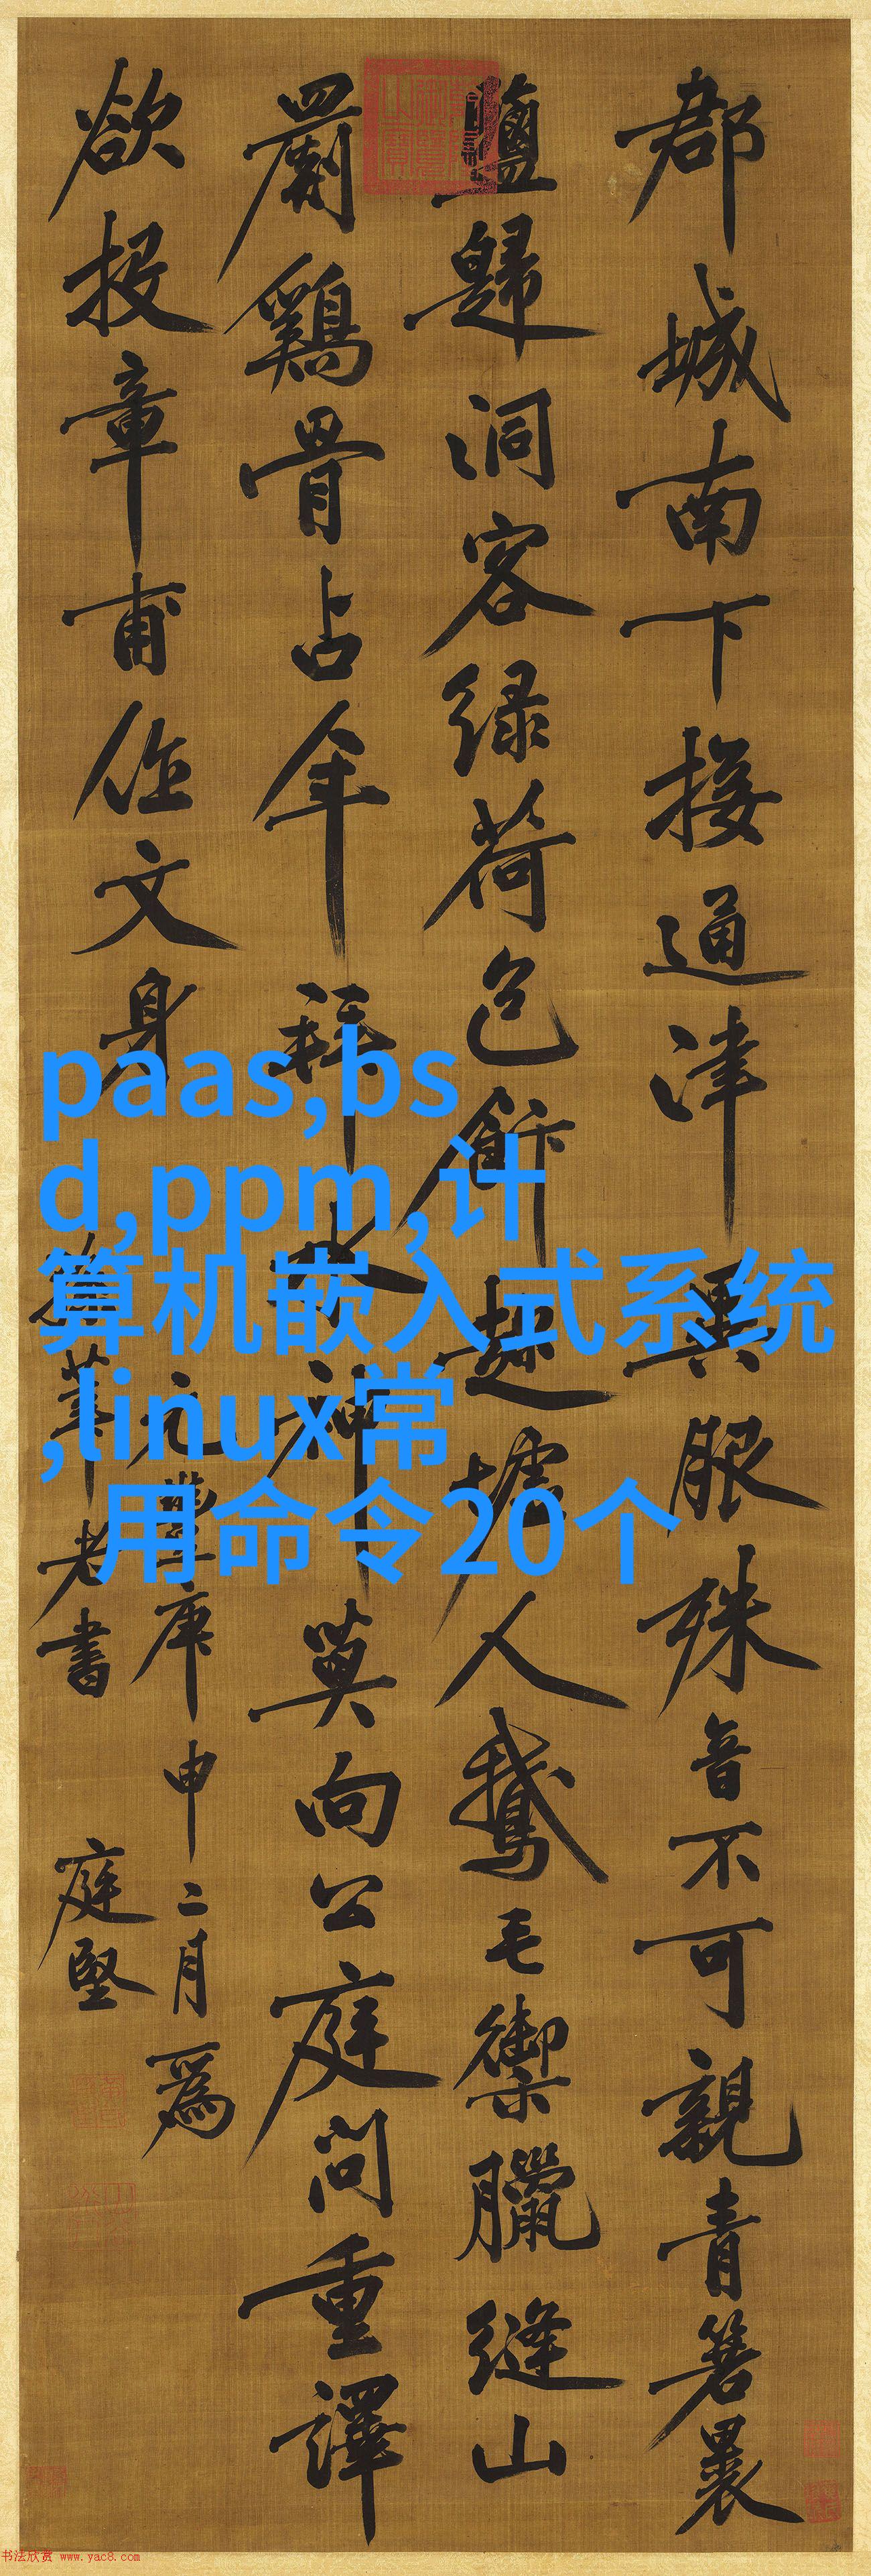 郡城南下接通津異服殊音不可親青箬裹
鹽歸洞客緑荷包飯趁墟人鵝毛禦臘縫山
罽鷄骨占年拜水神莫向公庭問重譯
欲投章甫作文身
元豐庚申二月爲
筆老書
庭堅
paas,bs
d,ppm,计
算机嵌入式系统
,linux常
用命令20个
书法欣赏 www.yac8.com